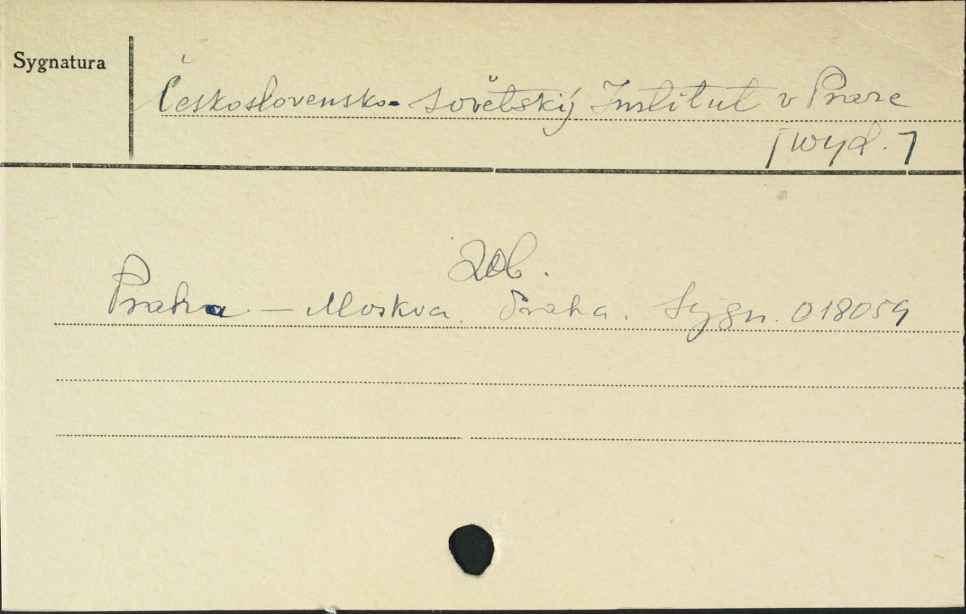 Sygnatura
Československo-sovětský Institut v Praze
[wyd.]
Zob.
Praha — Moskva. Praha. Sygn. 018059